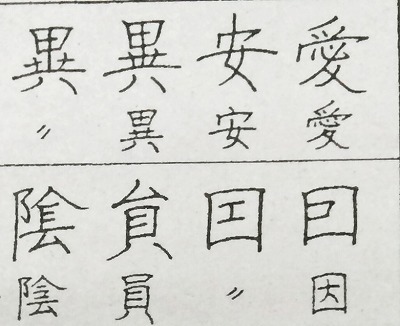 愛安異異
愛安異〃
囙貟陰
因〃員陰